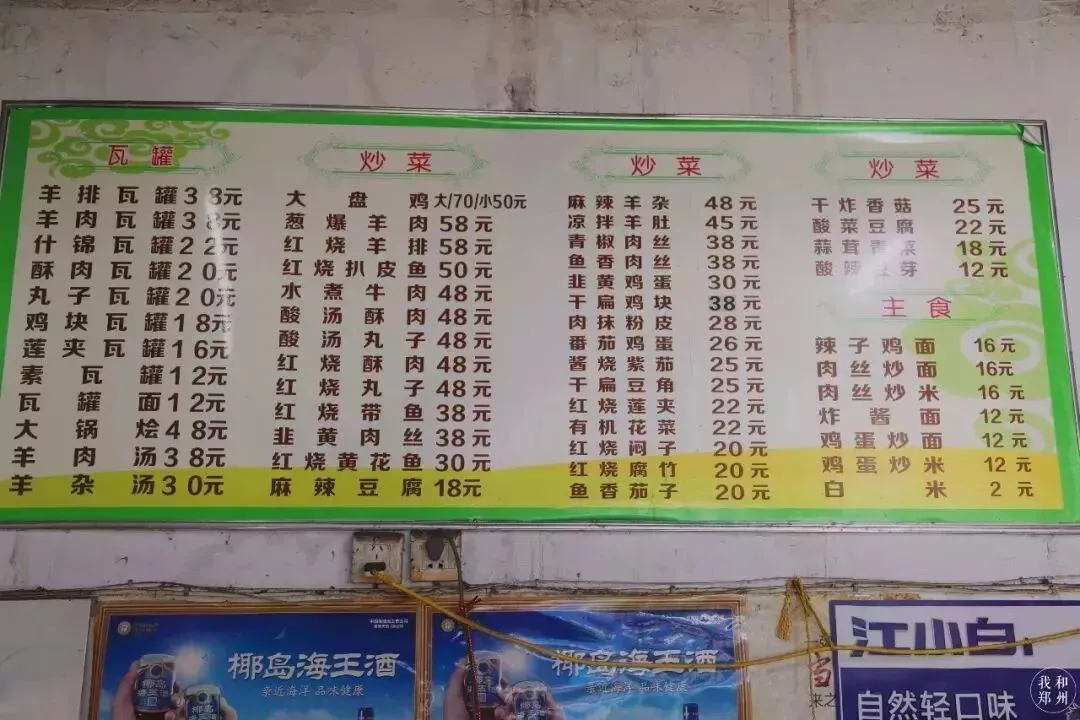 瓦罐
羊排瓦罐38元
羊肉瓦罐38元
什锦瓦罐22元
酥肉瓦罐20元
丸子瓦罐20元
鸡块瓦罐18元
莲夹瓦罐16元
素瓦罐12元
瓦罐面12元
大锅烩48元
羊肉汤38元
羊杂汤30元
炒菜
大盘鸡大/70/小50元
葱爆羊肉58元
红烧羊排58元
红烧扒皮鱼50元
水煮牛肉48元
酸汤酥肉48元
酸汤丸子48元
红烧酥肉48元
红烧丸子48元
红烧带鱼38元
韭黄肉丝38元
红烧黄花鱼30元
麻辣豆腐18元
炒菜
麻辣羊杂48元
凉拌羊肚45元
青椒肉丝38元
鱼香肉丝38元
韭黄鸡蛋30元
干扁鸡块38元
肉抹粉皮28元
番茄鸡蛋26元
酱烧紫茄25元
干扁豆角25元
红烧莲夹22元
有机花菜22元
红烧闷子20元
红烧腐竹20元
鱼香茄子20元
炒菜
干炸香菇25元
酸菜豆腐22元
蒜茸青菜18元
酸辣豆芽12元
主食
辣子鸡面16元
肉丝炒面16元
肉丝炒米16元
炸酱面12元
鸡蛋炒面12元
鸡蛋炒米12元
白米2元
椰岛海王酒
亲近海洋 品味健康
椰岛海王酒
亲近海洋 品味健康
来之
江小白
自然轻口味
我和郑州